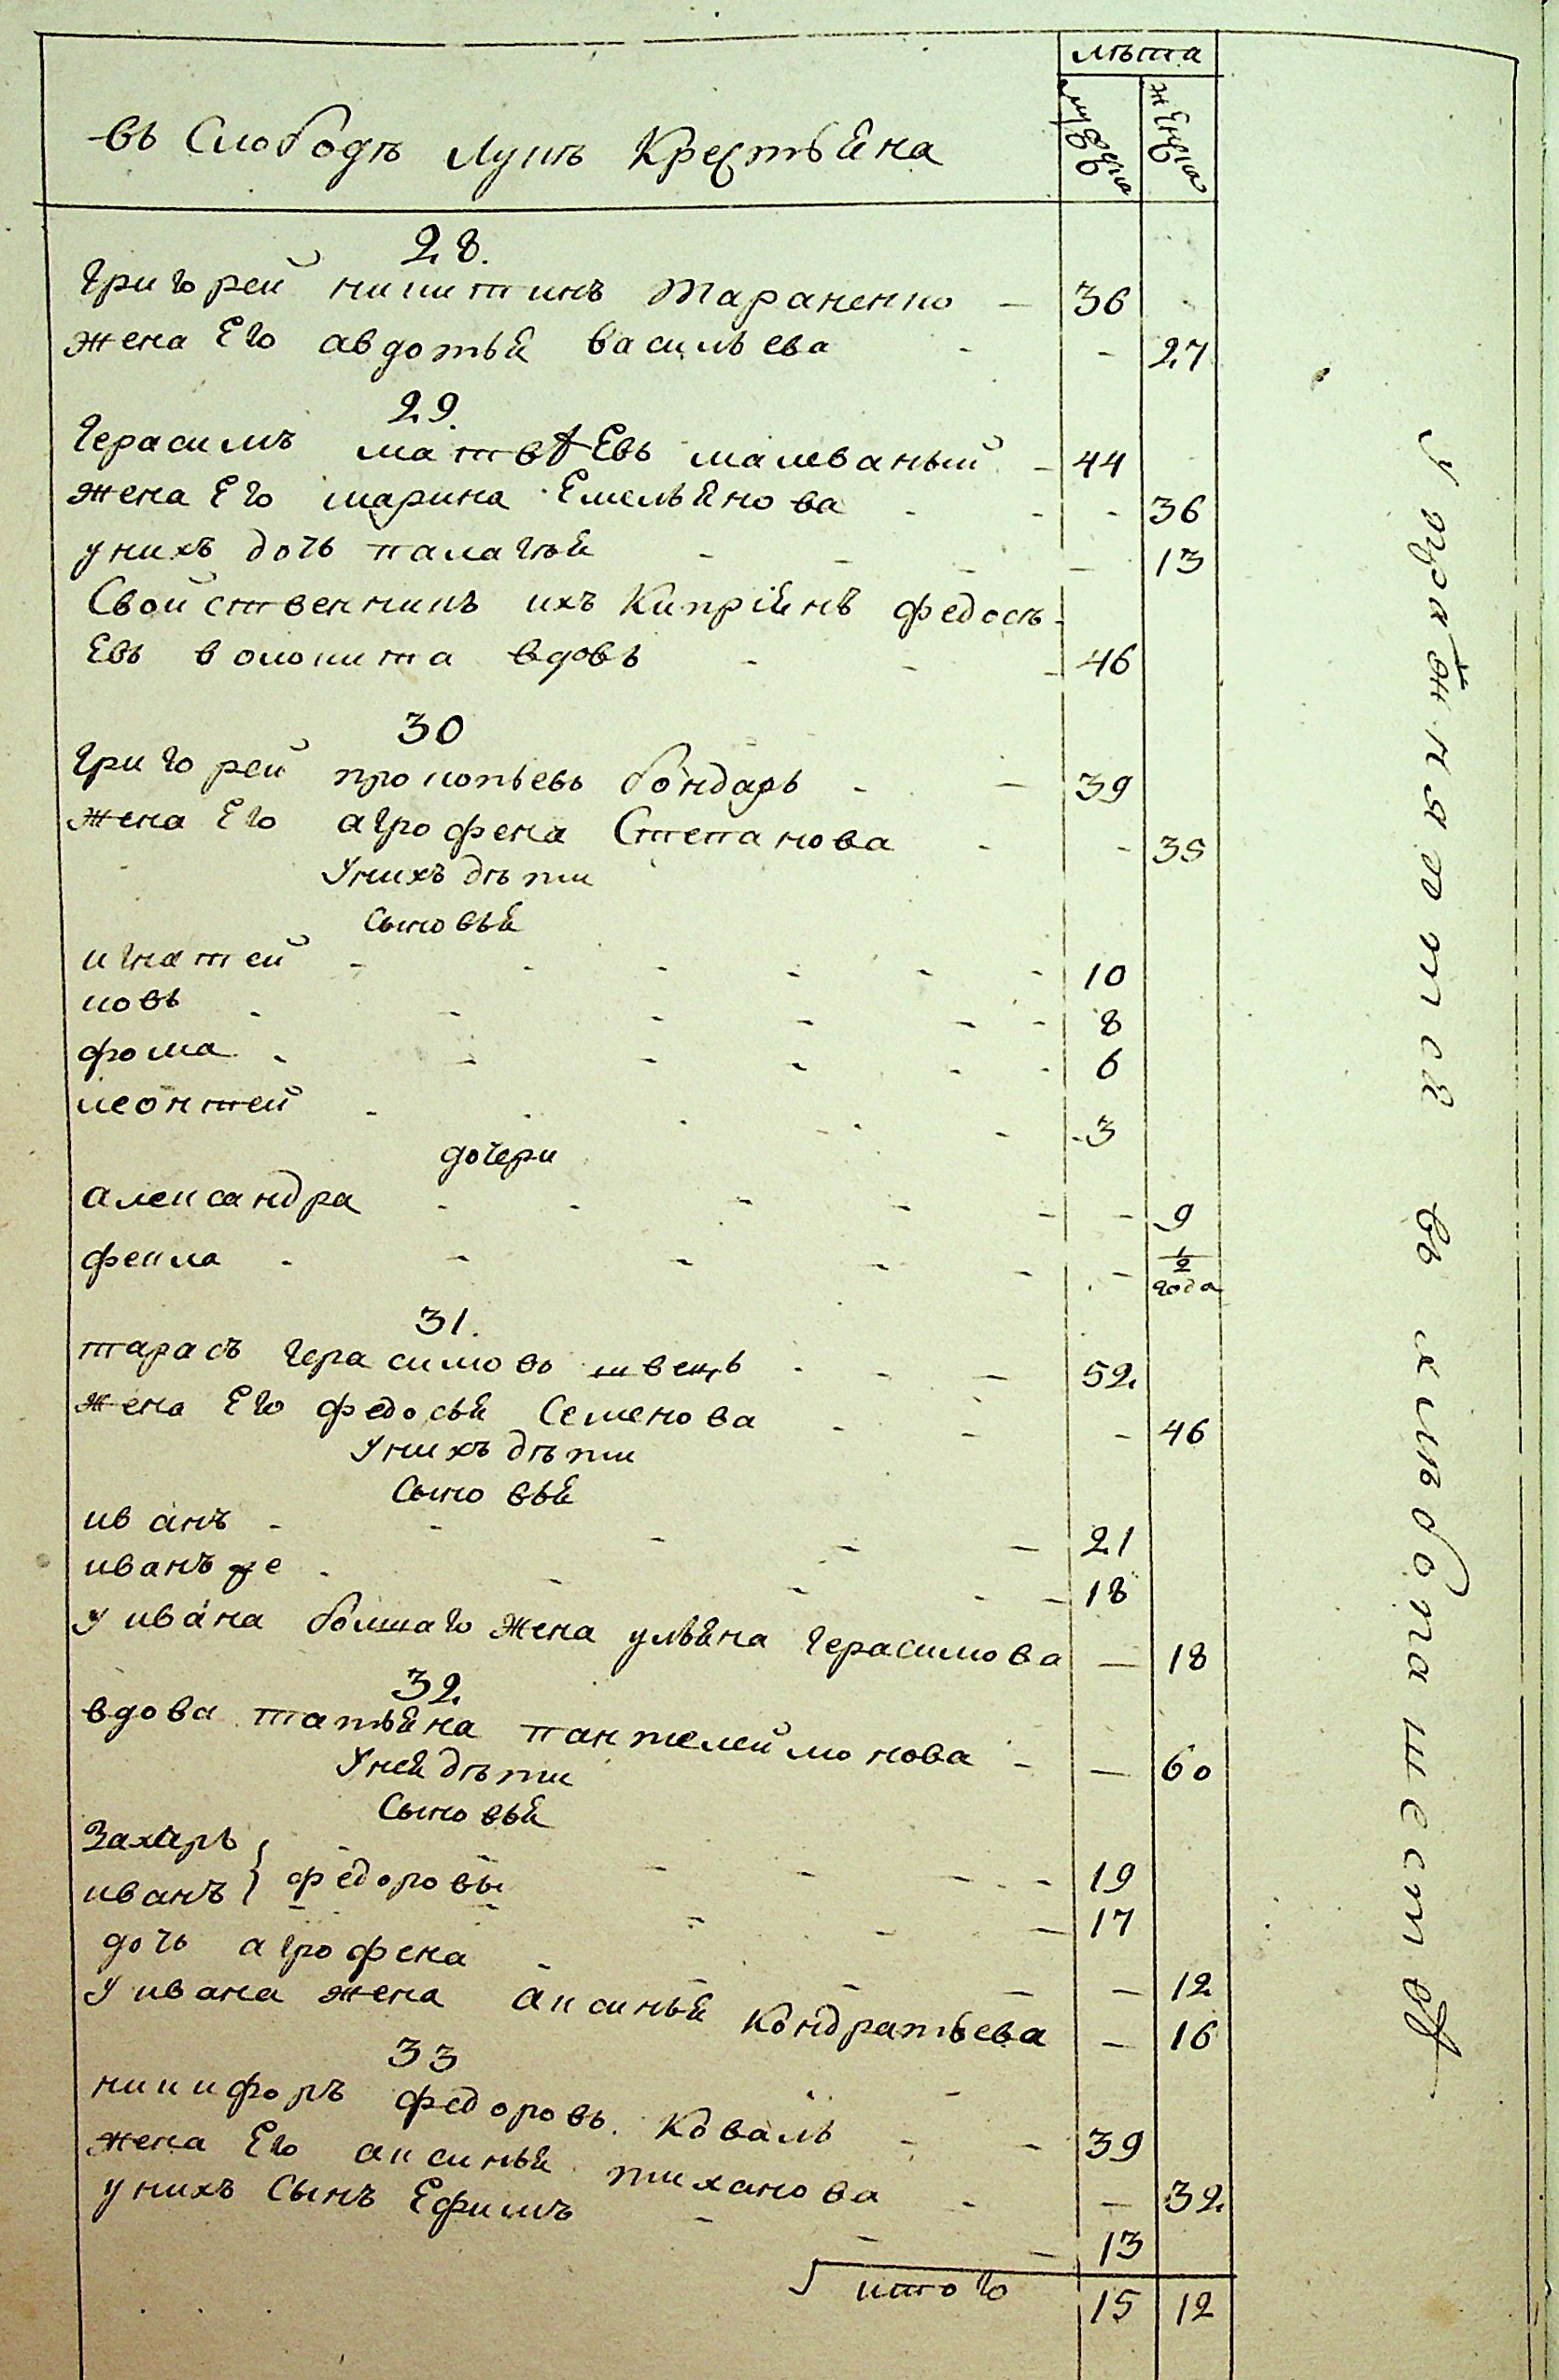 лѣта
въ Слободѣ Лукѣ Крестьяна
мужеска
женска
28.
григорей никитинъ тараненко — 36
жена Его авдотья васильева - - 27
29.
герасимъ матвѣЕвъ малеваный - 44
жена Его марина Емельянова - - - 36
унихъ дочь палагѣя - - - - 13
Свойственникъ ихъ Кипріянъ федосѣ-
Евъ волокита вдовъ - - - 46
30
григорей прокопьевъ бондарь - - 39
жена Его агрофена Степанова - - 35
Унихъ дѣти
Сыновья
игнатей - - - - - - 10
иовъ - - - - - - 8
фома - - - - - - 6
леонтей - - - - - - 3
дочери
александра - - - - - - 9
фекла - - - - - - 1/2 года
31.
тарасъ герасимовъ швецъ - - - 52
жена Его федосья Семенова - - - 46
Унихъ дѣти
Сыновья
иванъ - - - - - 21
иванъ же - - - - - 18
у ивана большаго жена ульяна герасимова - 18
32.
вдова татьяна пантелеймонова - - 60
Унея дѣти
Сыновья
Захаръ - - - - - - 19
иванъ } федоровы - - - - - 17
дочь агрофена - - - - - 12
У ивана жена аксинья Кондратьева - 16
33
никифоръ федоровъ Коваль - - 39
жена Его аксинья тиханова - - 32
унихъ Сынъ Ефимъ - - - 13
итого 15 12
въ